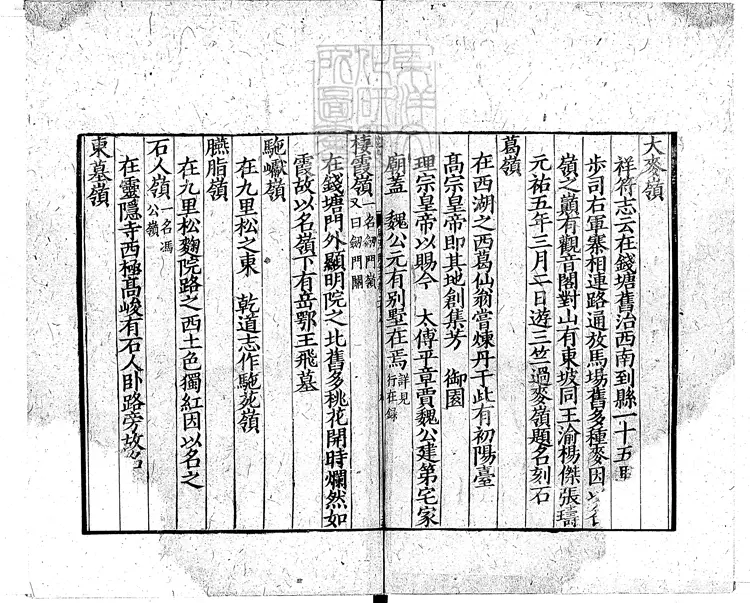 大麥嶺
祥符志云在錢塘舊治西南到縣一十五里
步司右軍寨相連路通放馬場舊多種麥因以名
嶺之巔有觀音閣對山有東坡同王渝楊傑張璹
元祐五年三月二日遊三竺過麥嶺題名刻石
葛嶺
在西湖之西葛仙翁嘗煉丹于此有初陽臺
高宗皇帝即其地創集芳 御園
理宗皇帝以賜今 太傅平章賈魏公建第宅家
廟蓋 魏公元有别墅在焉詳見行在錄
棲霞嶺一名劒門嶺又曰劒門關
在錢塘門外顯明院之北舊多桃花開時爛然如
霞故以名嶺下有岳鄂王飛墓
駞巘嶺
在九里松之東 乾道志作駞苑嶺
臙脂嶺
在九里松麴院路之西土色獨紅因以名之
石人嶺一名馮公嶺
在靈隱寺西極高峻有石人卧路旁故名
東墓嶺